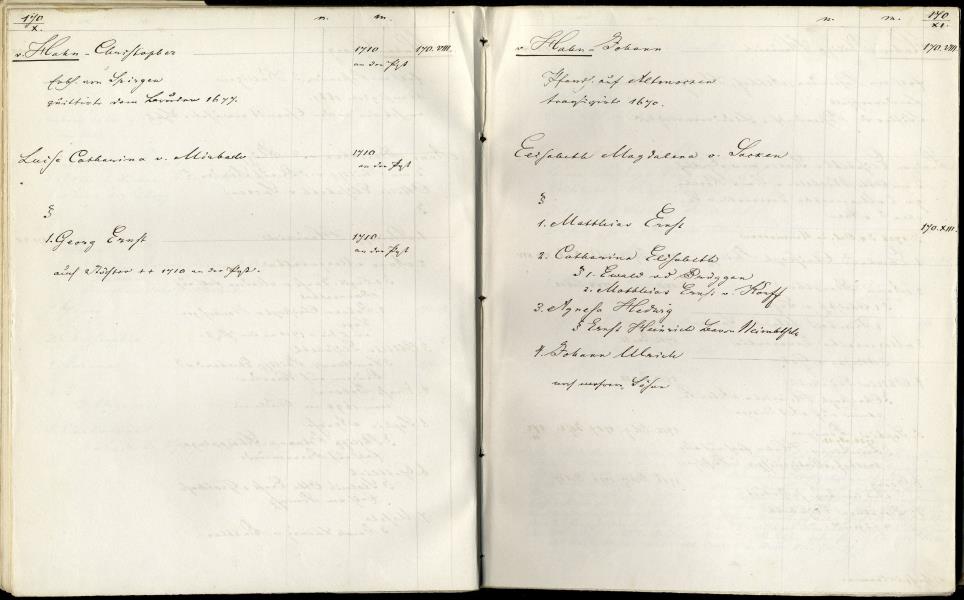 170
X.
n.
m.
v. Hahn - Christopher 1710 170. VIII.
an der Pest
Erbh. von Spirgen
quittirte dem Bruder 1677.
Luise Catharina v. Mirbach 1710
an der Pest
1. Georg Ernst 1710
an der Pest
auch Töchter ++ 1710 an der Pest.
n.
m.
170
XI.
v. Hahn - Johann 170. VIII.
Pfand. auf Altmocken
transigirte 1670.
Elisabeth Magdalena v. Sacken
1. Matthias Ernst 170. XIII.
2. Catharina Elisabeth
1. Ewald v. d. Brüggen
2. Matthias Ernst v. Korff
3. Agnesa Hedwig
Ernst Heinrich Baron
4. Johann Ulrich
noch mehrere Söhne